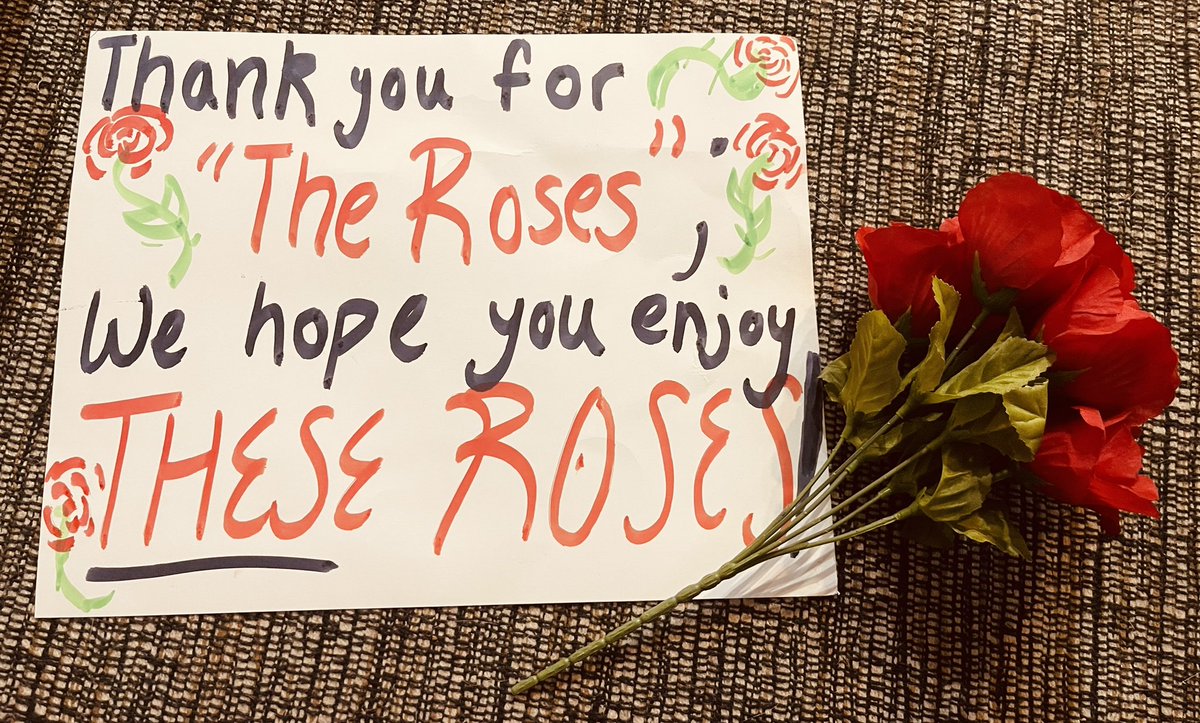 Thank you for
"The Roses".
We hope you enjoy
THESE ROSES